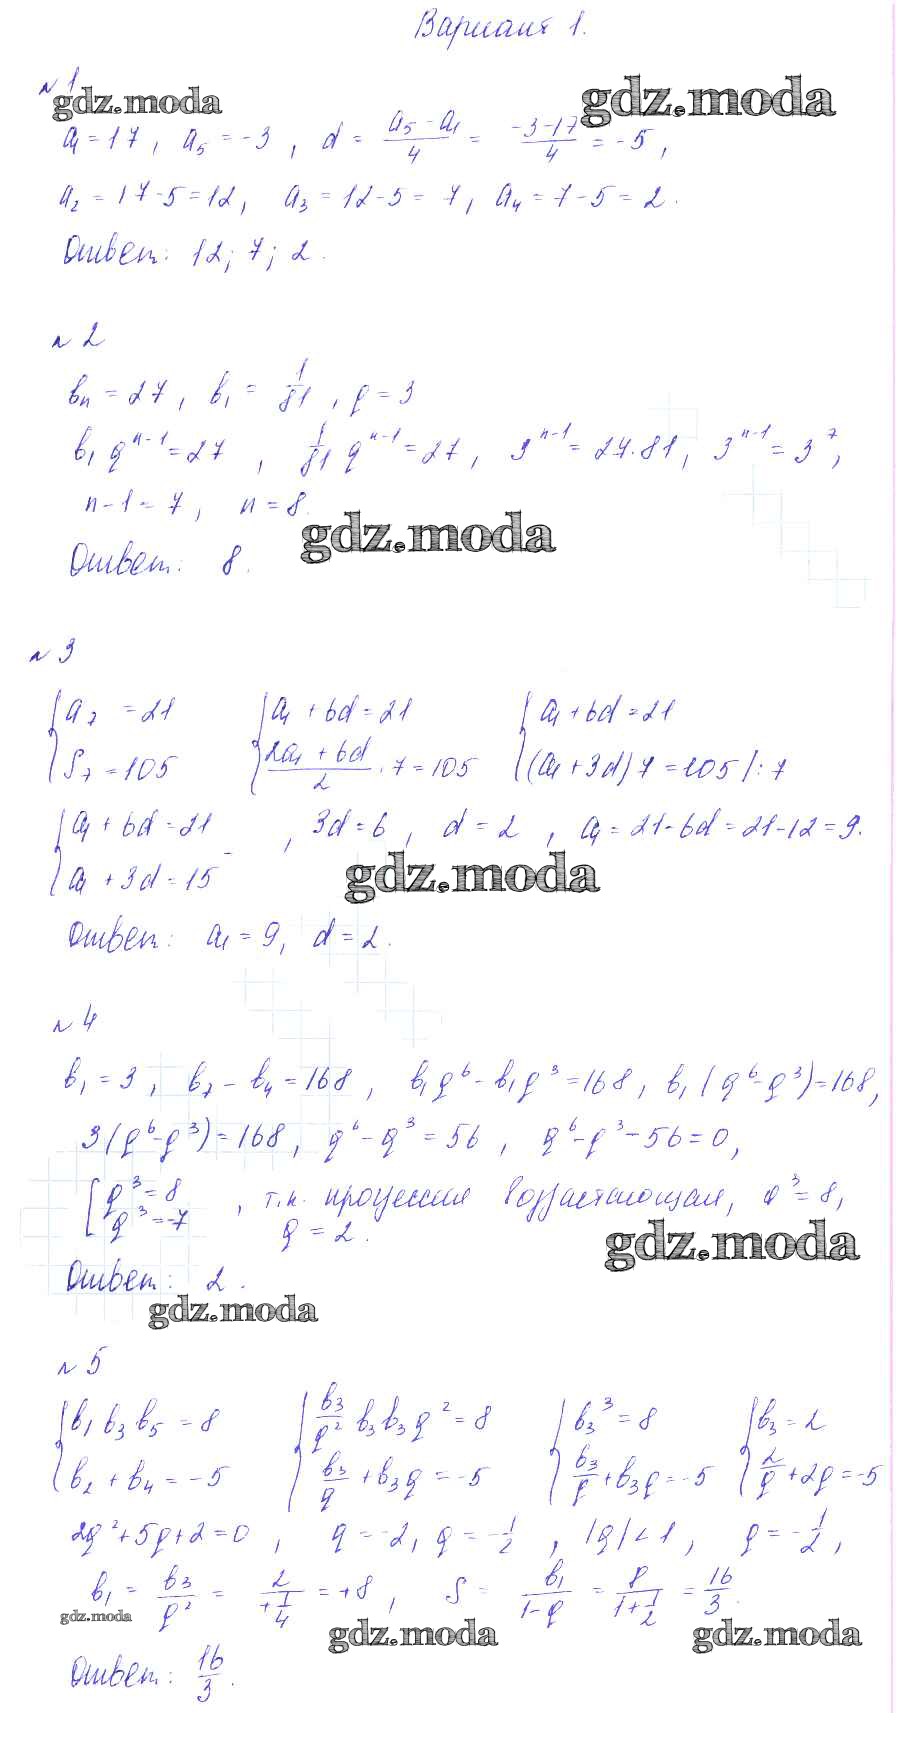 Вариант 1.
№ 1
gdz.moda gdz.moda
a₁ = 17, a₅ = -3, d = (a₅ - a₁)/4 = (-3-17)/4 = -5,
a₂ = 17-5 = 12, a₃ = 12-5 = 7, a₄ = 7-5 = 2.
Ответ: 12; 7; 2.
№ 2
bₙ = 27, b₁ = 1/81, q = 3
b₁qⁿ⁻¹ = 27, 1/81 qⁿ⁻¹ = 27, 3ⁿ⁻¹ = 27·81, 3ⁿ⁻¹ = 3⁷,
n-1 = 7, n = 8.
gdz.moda
Ответ: 8.
№ 3
{a₇ = 21 {a₁ + 6d = 21 {a₁ + 6d = 21
{S₇ = 105 {(2a₁ + 6d)/2 · 7 = 105 {(a₁ + 3d)7 = 105 /:7
{a₁ + 6d = 21 , 3d = 6, d = 2, a₁ = 21-6d = 21-12 = 9.
{a₁ + 3d = 15 -
gdz.moda
Ответ: a₁ = 9, d = 2.
№ 4
b₁ = 3, b₇ - b₄ = 168, b₁q⁶ - b₁q³ = 168, b₁(q⁶-q³) = 168,
3(q⁶-q³) = 168, q⁶-q³ = 56, q⁶-q³-56 = 0,
[q³ = 8 , т.к. прогрессия возрастающая, q³ = 8,
[q³ = -7 q = 2.
gdz.moda
Ответ: 2.
gdz.moda
№ 5
{b₁b₃b₅ = 8 {b₃/q² b₃b₃q² = 8 {b₃³ = 8 {b₃ = 2
{b₂ + b₄ = -5 {b₃/q + b₃q = -5 {b₃/q + b₃q = -5 {2/q + 2q = -5
2q² + 5q + 2 = 0, q = -2, q = -1/2, |q| < 1, q = -1/2,
b₁ = b₃/q² = 2/(+1/4) = +8, S = b₁/(1-q) = 8/(1+1/2) = 16/3.
gdz.moda gdz.moda gdz.moda
Ответ: 16/3.